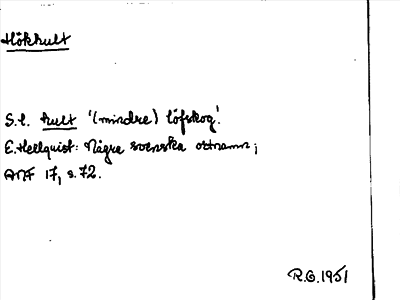 Hökhult
S.l. hult '(mindre) löfskog'.
E. Hellquist: Några svenska ortnamn;
ANF 17, s. 72.
R.G. 1951